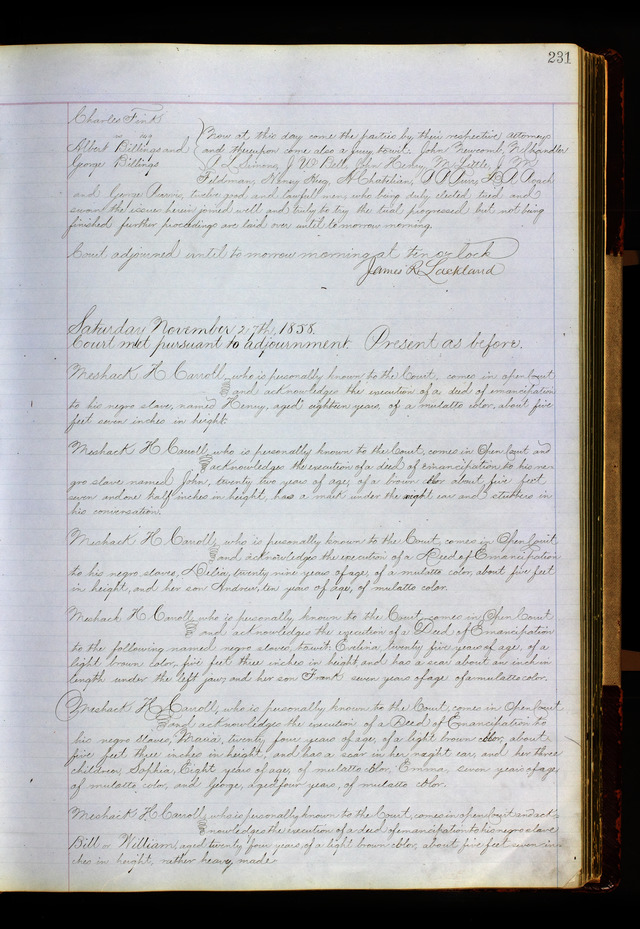 231
Charles Fink
vs
Albert Billings and
George Billings
Now at this day come the parties by their respective attorneys
and thereupon come also a jury towit. John Newcomb,
A L Simons, J W Bell, Henley, M Little, J M
Feldman, Henry Heeg, N Chatilian,
and George twelve good and lawfull men, who being duly elected tried and
sworn the issues herein joined well and truly to try the trial progressed but not being
finished further proceedings are laid over until to morrow morning.
Court adjourned until to morrow morning at ten oclock
James R Lackland
Saturday November 27th, 1858.
Court met pursuant to adjournment Present as before.
Meshack H Carroll, who is personally known to the Court, comes in open Court
and acknowledges the execution of a deed of emancipation
to his negro slave, named Henry, aged eighteen years, of a mulatto color, about five
feet seven inches in height.
Meshack H Carroll, who is personally known to the Court, comes in Open Court and
acknowledges the execution of a deed of emancipation to his ne-
gro slave named John, twenty two years of age, of a brown color about five feet
seven and one half inches in height, has a mark under the right ear and stutters in
his conversation.
Meshack H Carroll, who is personally known to the Court, comes in Open Court,
and acknowledges the execution of a Deed of Emancipation
to his negro slaves, Delia, twenty nine years of age, of a mulatto color, about five feet
in height, and her son Andrew, ten years of age, of mulatto color.
Meshack H Carroll, who is personally known to the Court comes in Open Court
and acknowledges the execution of a Deed of Emancipation
to the following named negro slaves, to wit: Evelina twenty five years of age, of a
light brown color, five feet three inches in height, and has a scar about an inch in
length under the left jaw, and her son Frank seven years of age of a mulatto color.
Meshack H Carroll, who is personally known to the Court, comes in Open Court
and acknowledges the execution of a Deed of Emancipation to
his negro slaves, Maria, twenty four years of age, of a light brown color, about
five feet three inches in height, and has a scar in her right ear, and her three
children, Sophia, Eight years of age, of mulatto color, Emma, seven years of age
of mulatto color, and George, aged four years, of mulatto color.
Meshack H Carroll, who is personally known to the Court, comes in open Court and ack-
nowledges the execution of a deed of emancipation to his negro slave
Bill or William, aged twenty four years, of a light brown color, about five feet seven in-
ches in height, rather heavy made